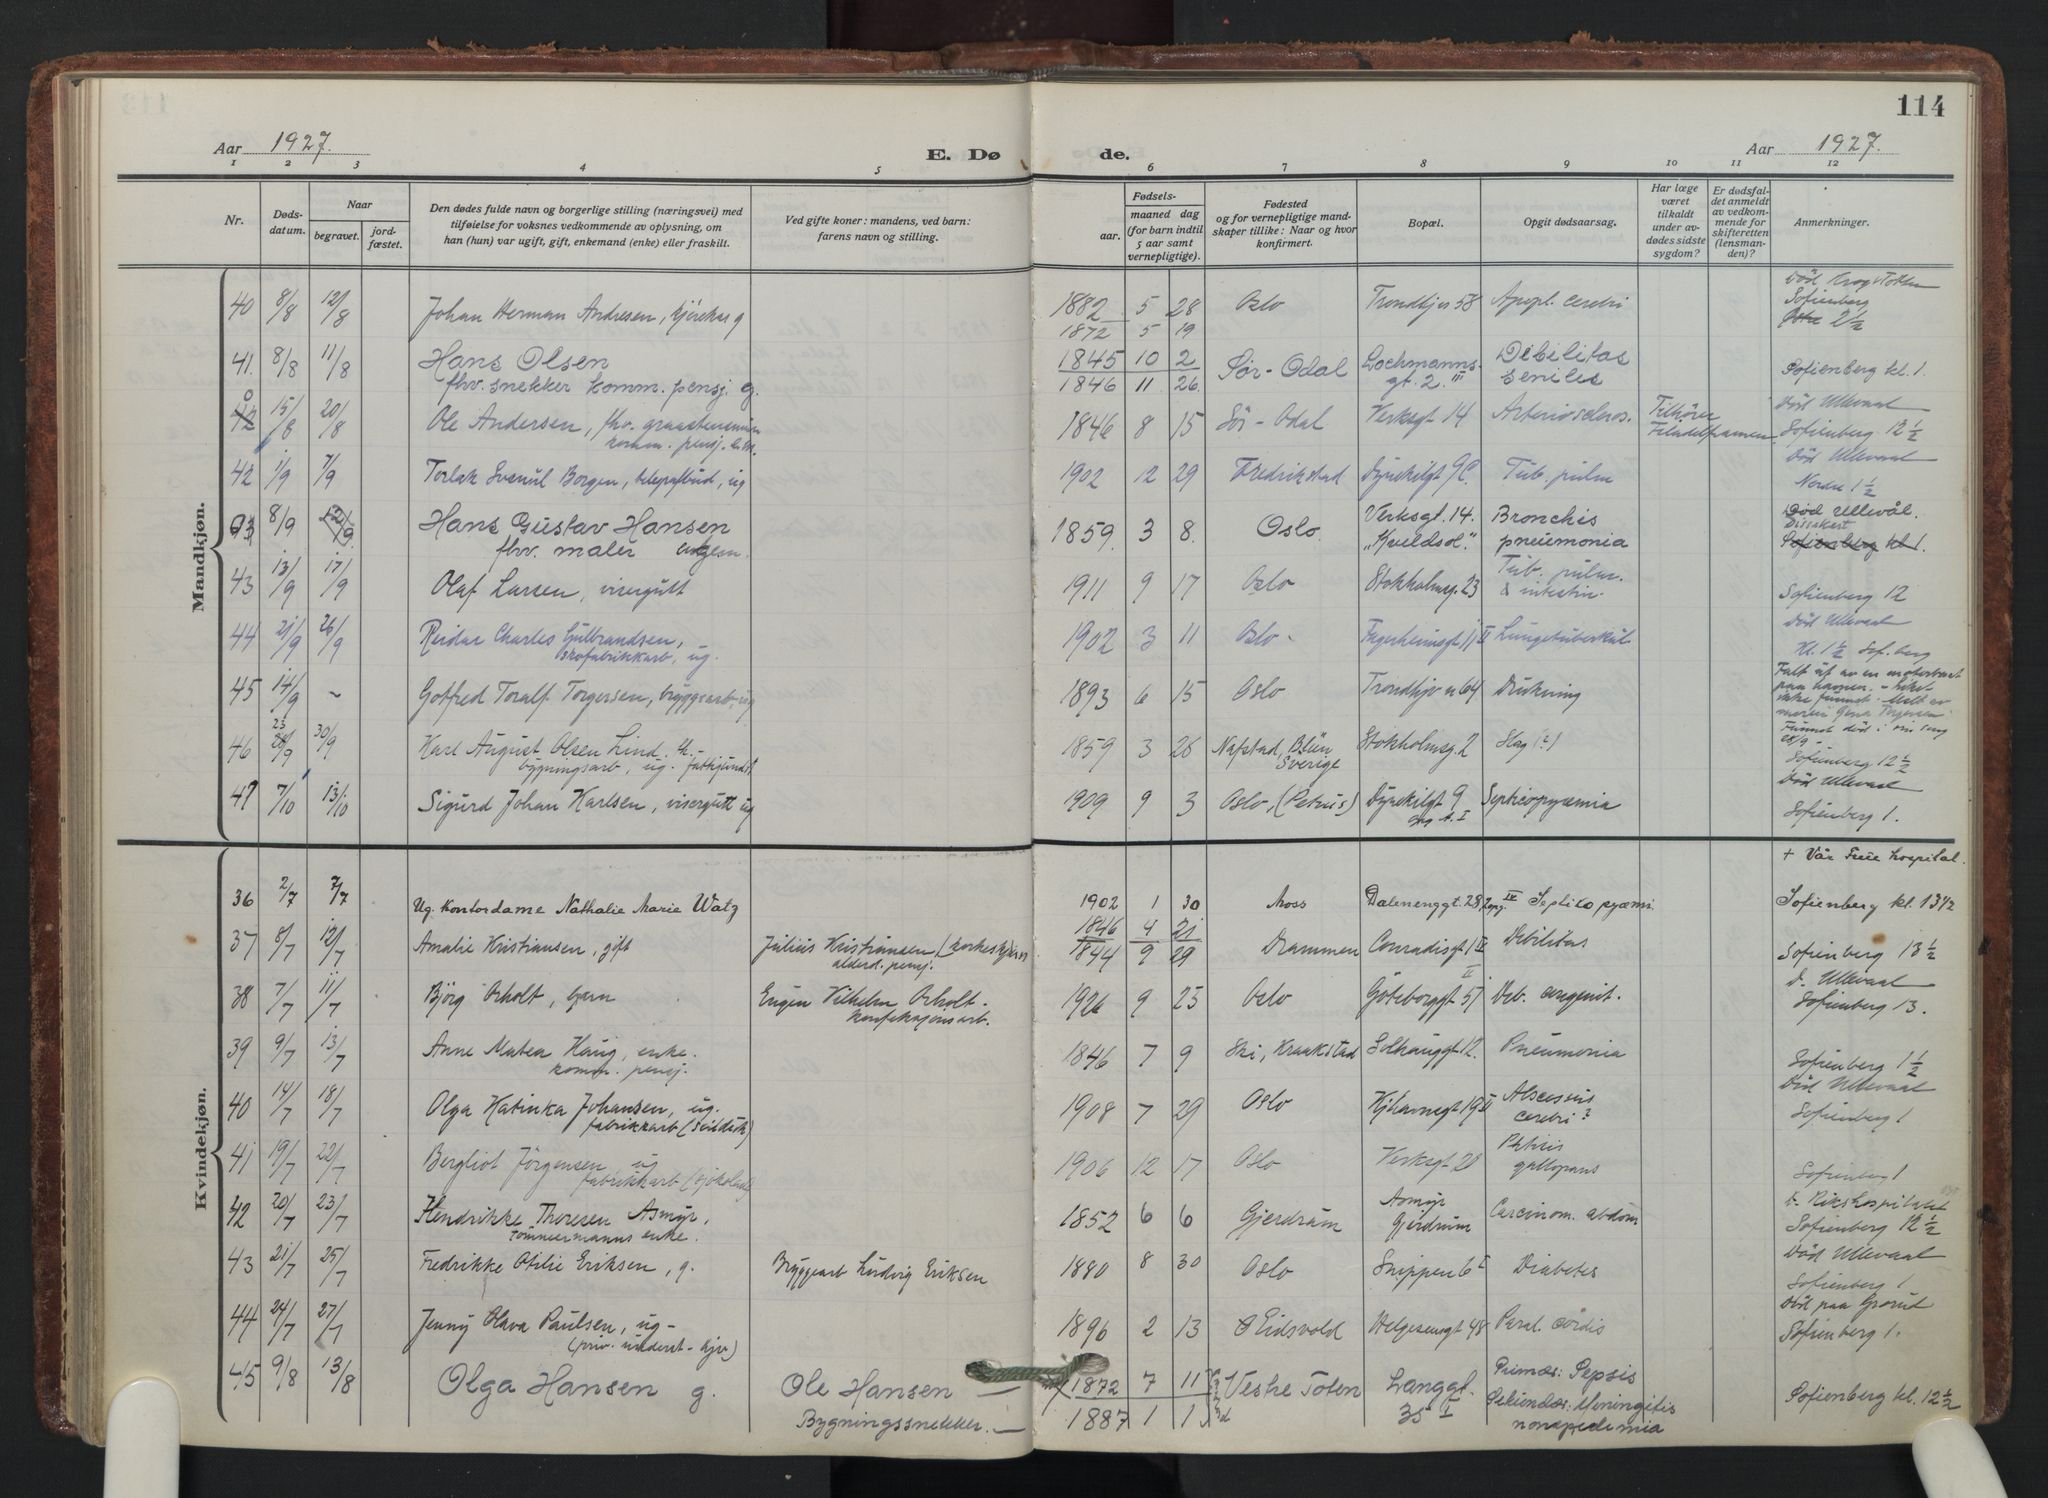 114
Aar 1927.
E. Døde.
Aar 1927.
1 2 3 4 5 6 7 8 9 10 11 12
Nr.
Døds-
datum.
Naar
begravet.
jord-
fæstet.
Den dødes fulde navn og borgerlige stilling (næringsvei) med
tilføielse for voksnes vedkommende av oplysning, om
han (hun) var ugift, gift, enkemand (enke) eller fraskilt.
Ved gifte koner: mandens, ved barn:
farens navn og stilling.
Fødsels-
aar.
maaned dag
(for barn indtil
5 aar samt
vernepligtige).
Fødested
og for vernepligtige mand-
skaper tillike: Naar og hvor
konfirmert.
Bopæl.
Opgit dødsaarsag.
Har læge
været
tilkaldt
under av-
dødes sidste
sygdom?
Er dødsfal-
det anmeldt
av vedkom-
mende for
skifteretten
(lensman-
den)?
Anmerkninger.
Mandkjøn.
40 8/8 12/8 Johan Herman Andresen, kjørekar g 1882 5 28 Oslo Trondhjvn 58 Apopl. cerebri
1872 5 19
Sofienberg
2 1/2
41. 8/8 11/8 Hans Olsen 1845 10 2 Sør-Odal Lochmanns- Debilitas
fhv. snekker komm. pensj. g. 1846 11 26 gt. 2 III seniles Sofienberg kl. 1.
42 15/8 20/8 Ole Andersen, fhv. 1846 8 15 Sør-Odal Verksgt 14 Arterioscleros. Tilhører Død Ullevaal
komm. pensj. Sofienberg 12 1/2
42 1/9 7/9 Torlak Borgen, telegrafbud, ug 1902 12 29 Fredrikstad Dynekilgt 9 Tub. pulm Død Ullevaal
Nordre 1 1/2
8/9 Hans Gustav Hansen 1859. 3 8. Oslo. Verksgt. 14. Bronchis Død Ullevål.
fhv. maler "Kveldsol". pneumonia Sofienberg kl 1.
43 13/9 17/9 Olaf Larsen, visergutt 1911 9 17 Oslo Stokholmsg. 23 Tub. pulm.
& intestin. Sofienberg 12
44 21/9 26/9 Reidar Charles Gulbrandsen, 1902 3 11 Oslo - Fagerheimsgt 11 II Lungetuberkul Død Ullevaal
ug. Kl. 1 1/2 Sof.berg
45 14/9 ~ Gotfred Toralf Torgersen, bryggearb. ug 1893 6 15 Oslo Trondhjvn 64 Drukning
Falt ut av en motorbaat
paa havnen. - Liket
ikke funnet.
46 23/9 30/9 Karl August Olsen Lind. 1859 3 26 Sverige Stokholmsg. 2 Slag (?)
bygningsarb, ug.
28/9 -
Sofienberg 12 1/2
47 7/10 13/10 Sigurd Johan Karlsen, visergutt ug 1909 9 3 Oslo, (Petrus) Dynekilgt 9 Septicopyæmia Død Ullevaal
Sofienberg 1.
Kvindekjøn.
+ Vår Frue hospital.
36 2/7 7/7 Ug. Kontordame Nathalie Marie Watz 1902 1 30 Moss Dalenenggt. 28 IV Septico pyæmi. Sofienberg kl. 13 1/2
37 8/7 12/7 Amalie Kristiansen, gift Julius Kristiansen 1846 4 21 Drammen Conradisgt 1 II Debilitas
alderd. pensj. 1844 9 29 Sofienberg 13 1/2
38 7/7 11/7 Bjørg Orholt, barn Eugen Vilhelm Orholt. 1926 9 23 Oslo Göteborggt 51 Deb. congenit. d. Ullevaal
konfeksjonsarb. Sofienberg 13.
39 9/7 13/7 Anne Matea Haug, enke. 1846 7 9 Ski, Kraakstad Solhauggt 12. Pneumonia
komm. pensj. Sofienberg 1 1/2
40 14/7 18/7 Olga Katinka Johansen, ug. 1908 7 29 Oslo Kjhavnsgt 19 II Abscessus Død Ullevaal
fabrikkarb (seilduk) cerebri? Sofienberg 1
41 19/7 22/7 Bergliot Jørgensen ug 1906 12 17 Oslo Verksgt 20 Phtisis
fabrikkarb (sjokolade) galopans Sofienberg 1
42 20/7 23/7 Hendrikke Thoresen Asmyr, 1852 6 6 Gjerdrum Asmyr Carcinom. abdom d. Rikshospitalet
tømmermanns enke. Gjerdrum Sofienberg 12 1/2
43 21/7 25/7 Fredrikke Otilie Eriksen, g. Bryggearb Ludvig Eriksen 1880 8 30 Oslo Snippen 6 I Diabetes Død Ullevaal
Sofienberg 1
44 24/7 27/7 Jenny Olava Paulsen, ug - 1896 2 13 Eidsvold Helgesensgt 48 Paral. cordis Død paa Grorud
Sofienberg 1.
45 9/8 13/8 Olga Hansen g. Ole Hansen 1872 7 11 Vestre Toten Langgt. Primær: Sepsis
Bygningssnekker. 1887 1 1 35 I Sekundær: Meningitis Sofienberg kl. 12 1/2